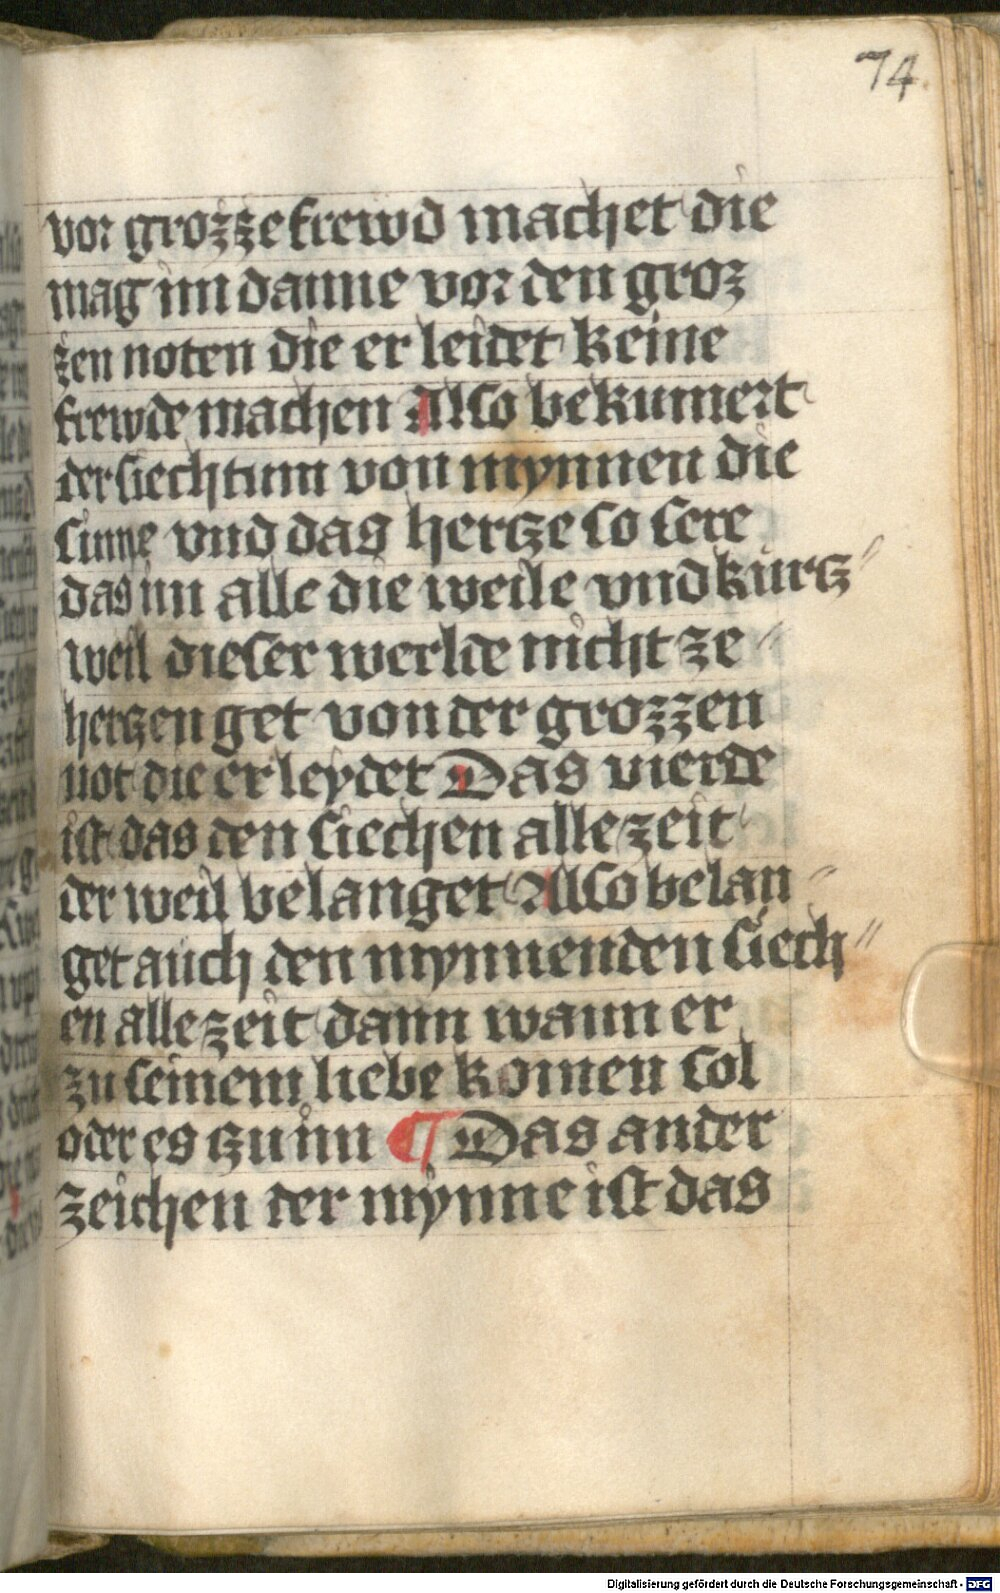 74.
vor grozze frewd machet die
mag im danne vor den groz
zen noten die er leidet keine
frewde machen Also bekumert
der siechtum von mynnen die
sinne vnd das hertze so sere
das im alle die weile vnd kurtz"
weil dieser werlde nicht ze"
hertzen get von der grozzen
not die er leydet Das vierde
ist das den siechen alle zeit
der weil belanget Also belan"
get auch den mynnenden siech"
en alle zeit dann wann er
zu seinem liebe komen sol
oder es zu im ¶ Das ander
zeichen der mynne ist das
Digitalisierung gefördert durch die Deutsche Forschungsgemeinschaft - DFG